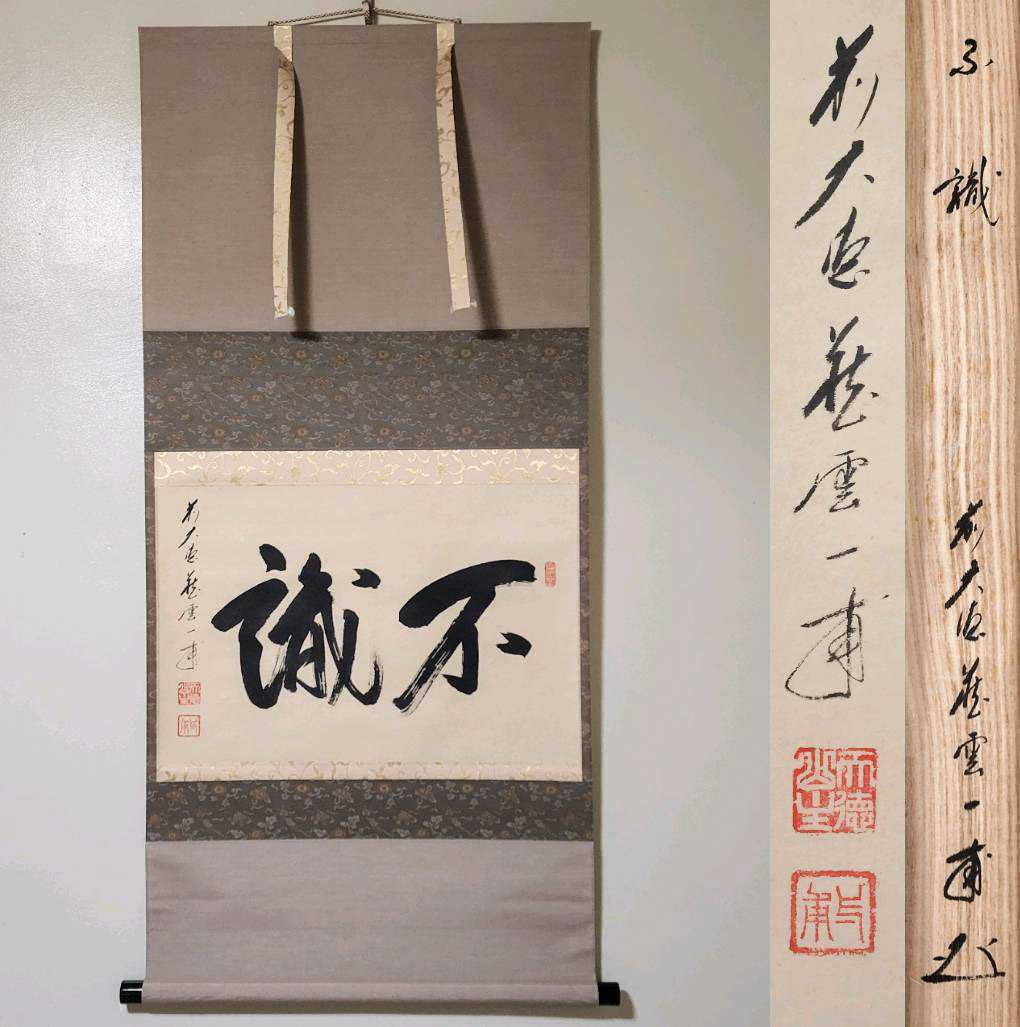 不識
前大徳藏雲一甫
前大徳藏雲一甫
不識
前大徳藏雲一甫